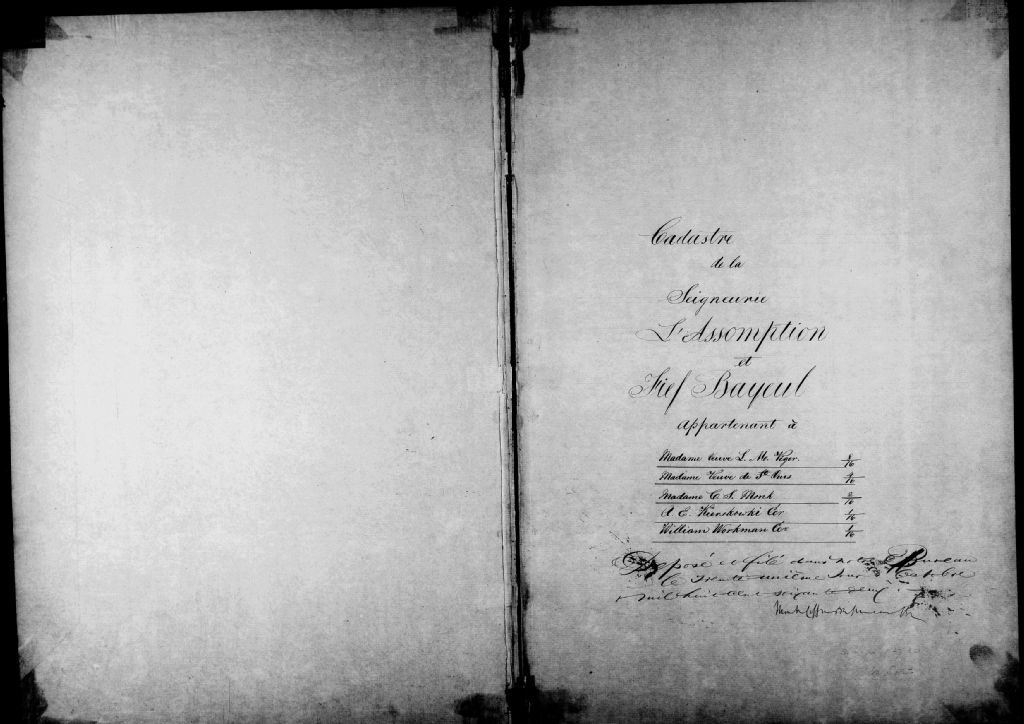 Cadastre
de la
Seigneurie
L'Assomption
et
Fief Bayeul
appartenant à
Madame Veuve L. M. Viger.
Madame Veuve de St Ours
Madame C. S. Monk
A. E. Kierskowski Ecr 1/16
William Workman Ecr 1/16
Déposé et filé dans notre Bureau
le trente unième jour Octobre
mil huit cent soixante deux